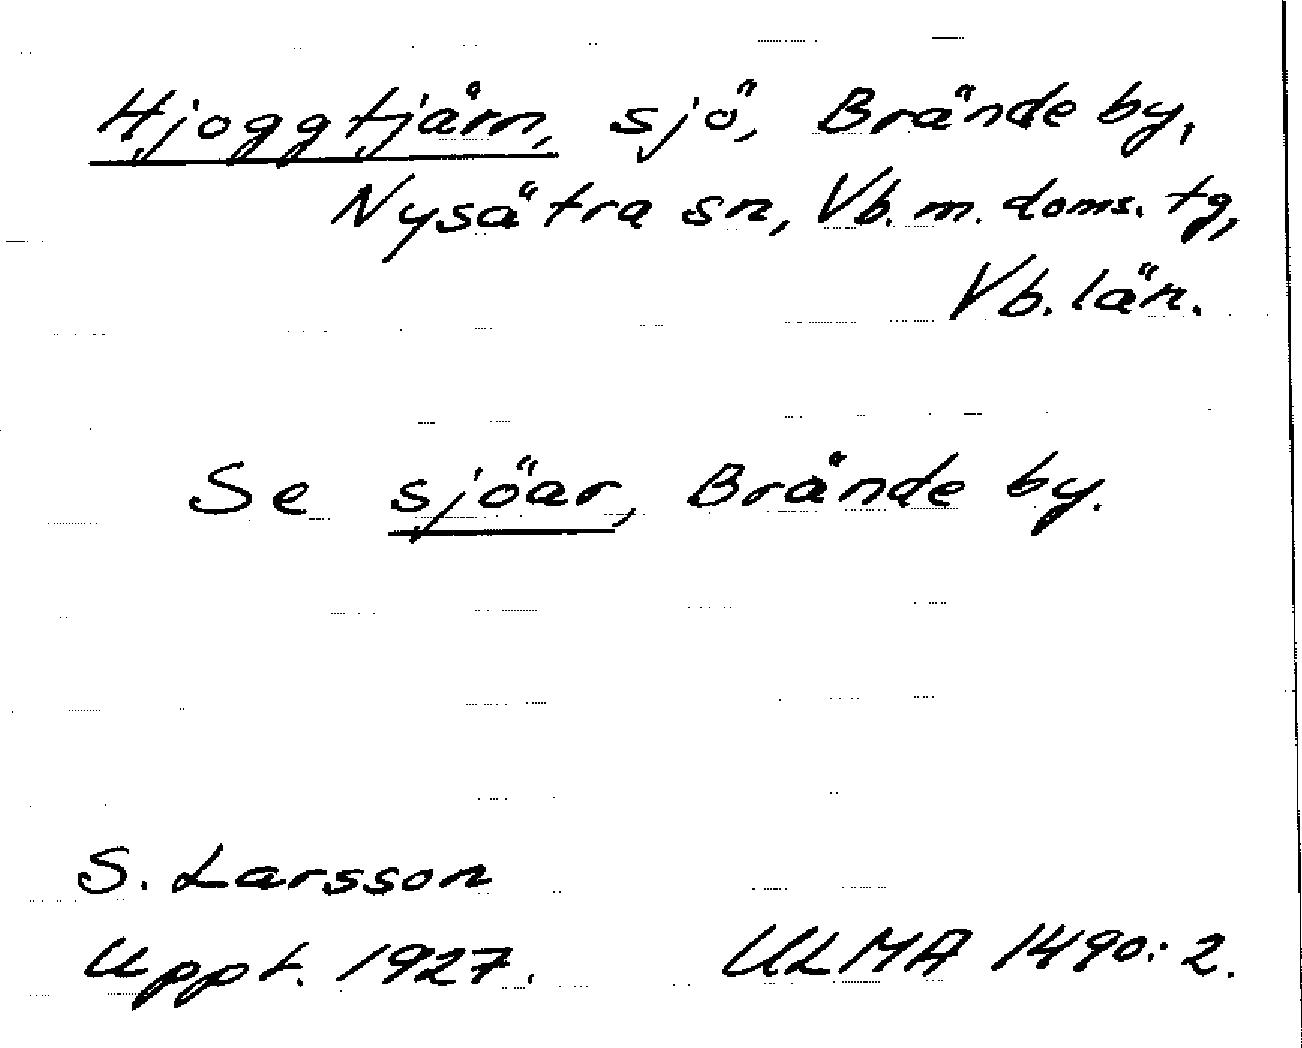 Hjoggtjärn, sjö, Brände by,
Nysätra sn, Vb. m. doms. tg,
Vb. län.
Se sjöar, Brände by.
S. Larsson
Uppt. 1927.
ULMA 1490:2.